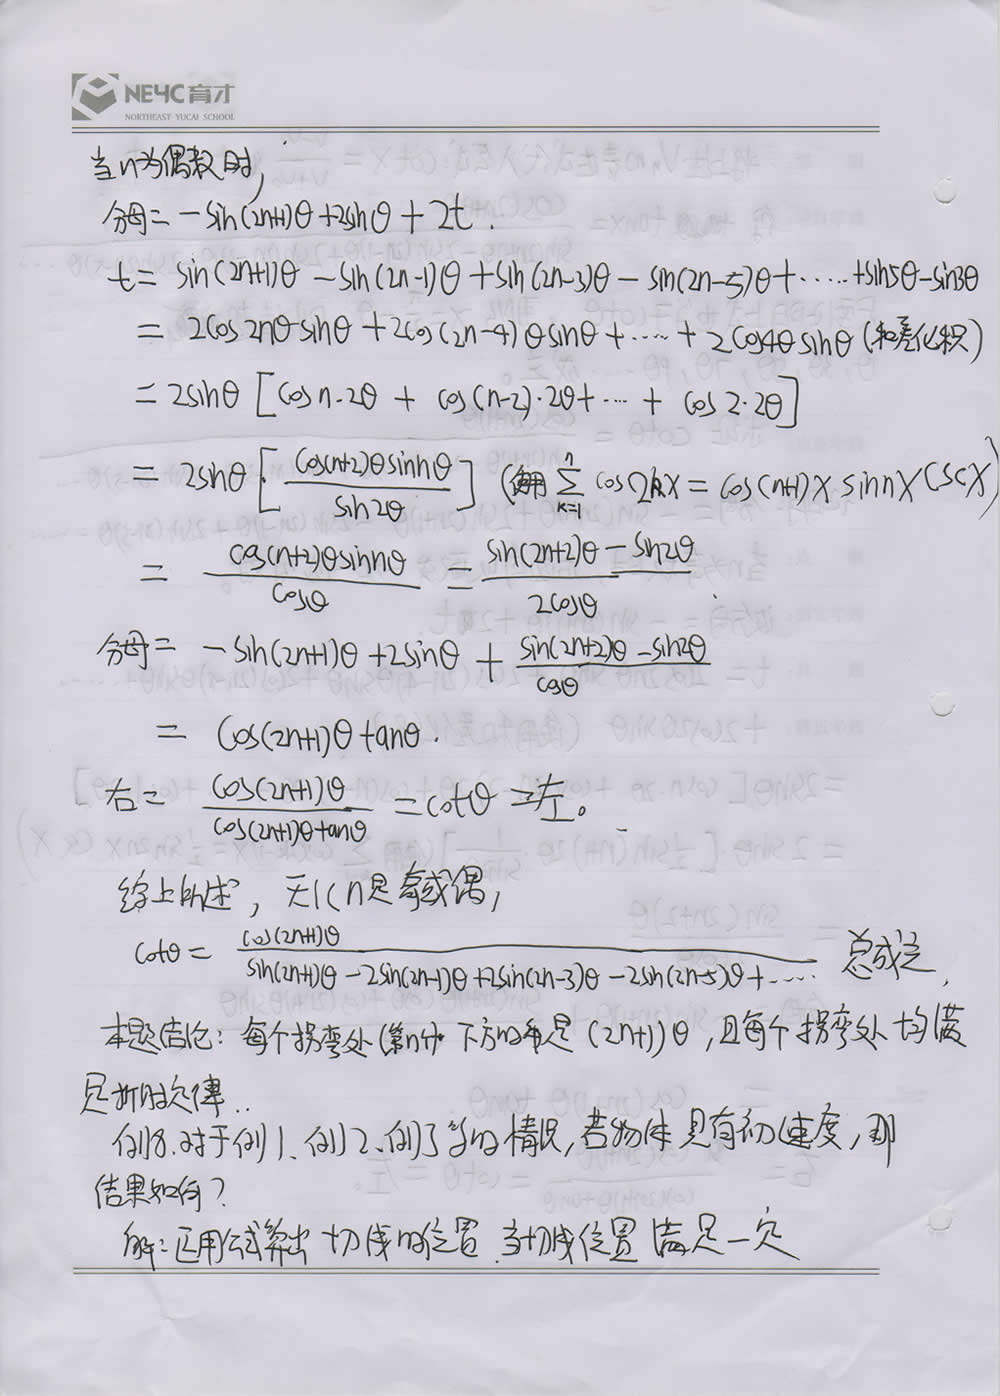 NEYC 育才
NORTHEAST YUCAI SCHOOL
当n为偶数时,
分母= -sin(2n+1)θ+2sinθ+2t.
t= sin(2n+1)θ-sin(2n-1)θ+sin(2n-3)θ-sin(2n-5)θ+……+sin5θ-sin3θ
= 2cos2nθsinθ+2cos(2n-4)θsinθ+……+2cos4θsinθ(和差化积)
= 2sinθ[cosn·2θ + cos(n-2)·2θ+…+ cos2·2θ]
= 2sinθ·[cos(n+2)θsinnθ / sin2θ] (使用 ∑_{k=1}^{n} cos2kx = cos(n+1)x sinnx cscx)
= cos(n+2)θsinnθ / cosθ = (sin(2n+2)θ-sin2θ) / 2cosθ
分母= -sin(2n+1)θ+2sinθ+ (sin(2n+2)θ-sin2θ) / cosθ
= cos(2n+1)θtanθ.
右= cos(2n+1)θ / cos(2n+1)θtanθ =cotθ=左。
综上所述,无论n是奇或偶,
cotθ= cos(2n+1)θ / (sin(2n+1)θ-2sin(2n-1)θ+2sin(2n-3)θ-2sin(2n-5)θ+……) 总成立,
本题结论:每个拐弯处(第n个)下方的角是(2n+1)θ,且每个拐弯处均满
足折射定律..
例8.对于例1、例2、例7的情况,若物体具有初速度,那
结果如何?
解:运用公式算出切线的位置.当切线位置满足一定